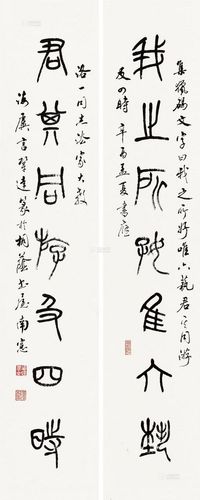 我之所好隹六埶
集獵碣文字曰我之所好唯六藝君其同游
及四時 辛酉孟夏書應
君其同游及四時
洛一同志法家大教
海虞言達篆於桐蔭書屋南窗